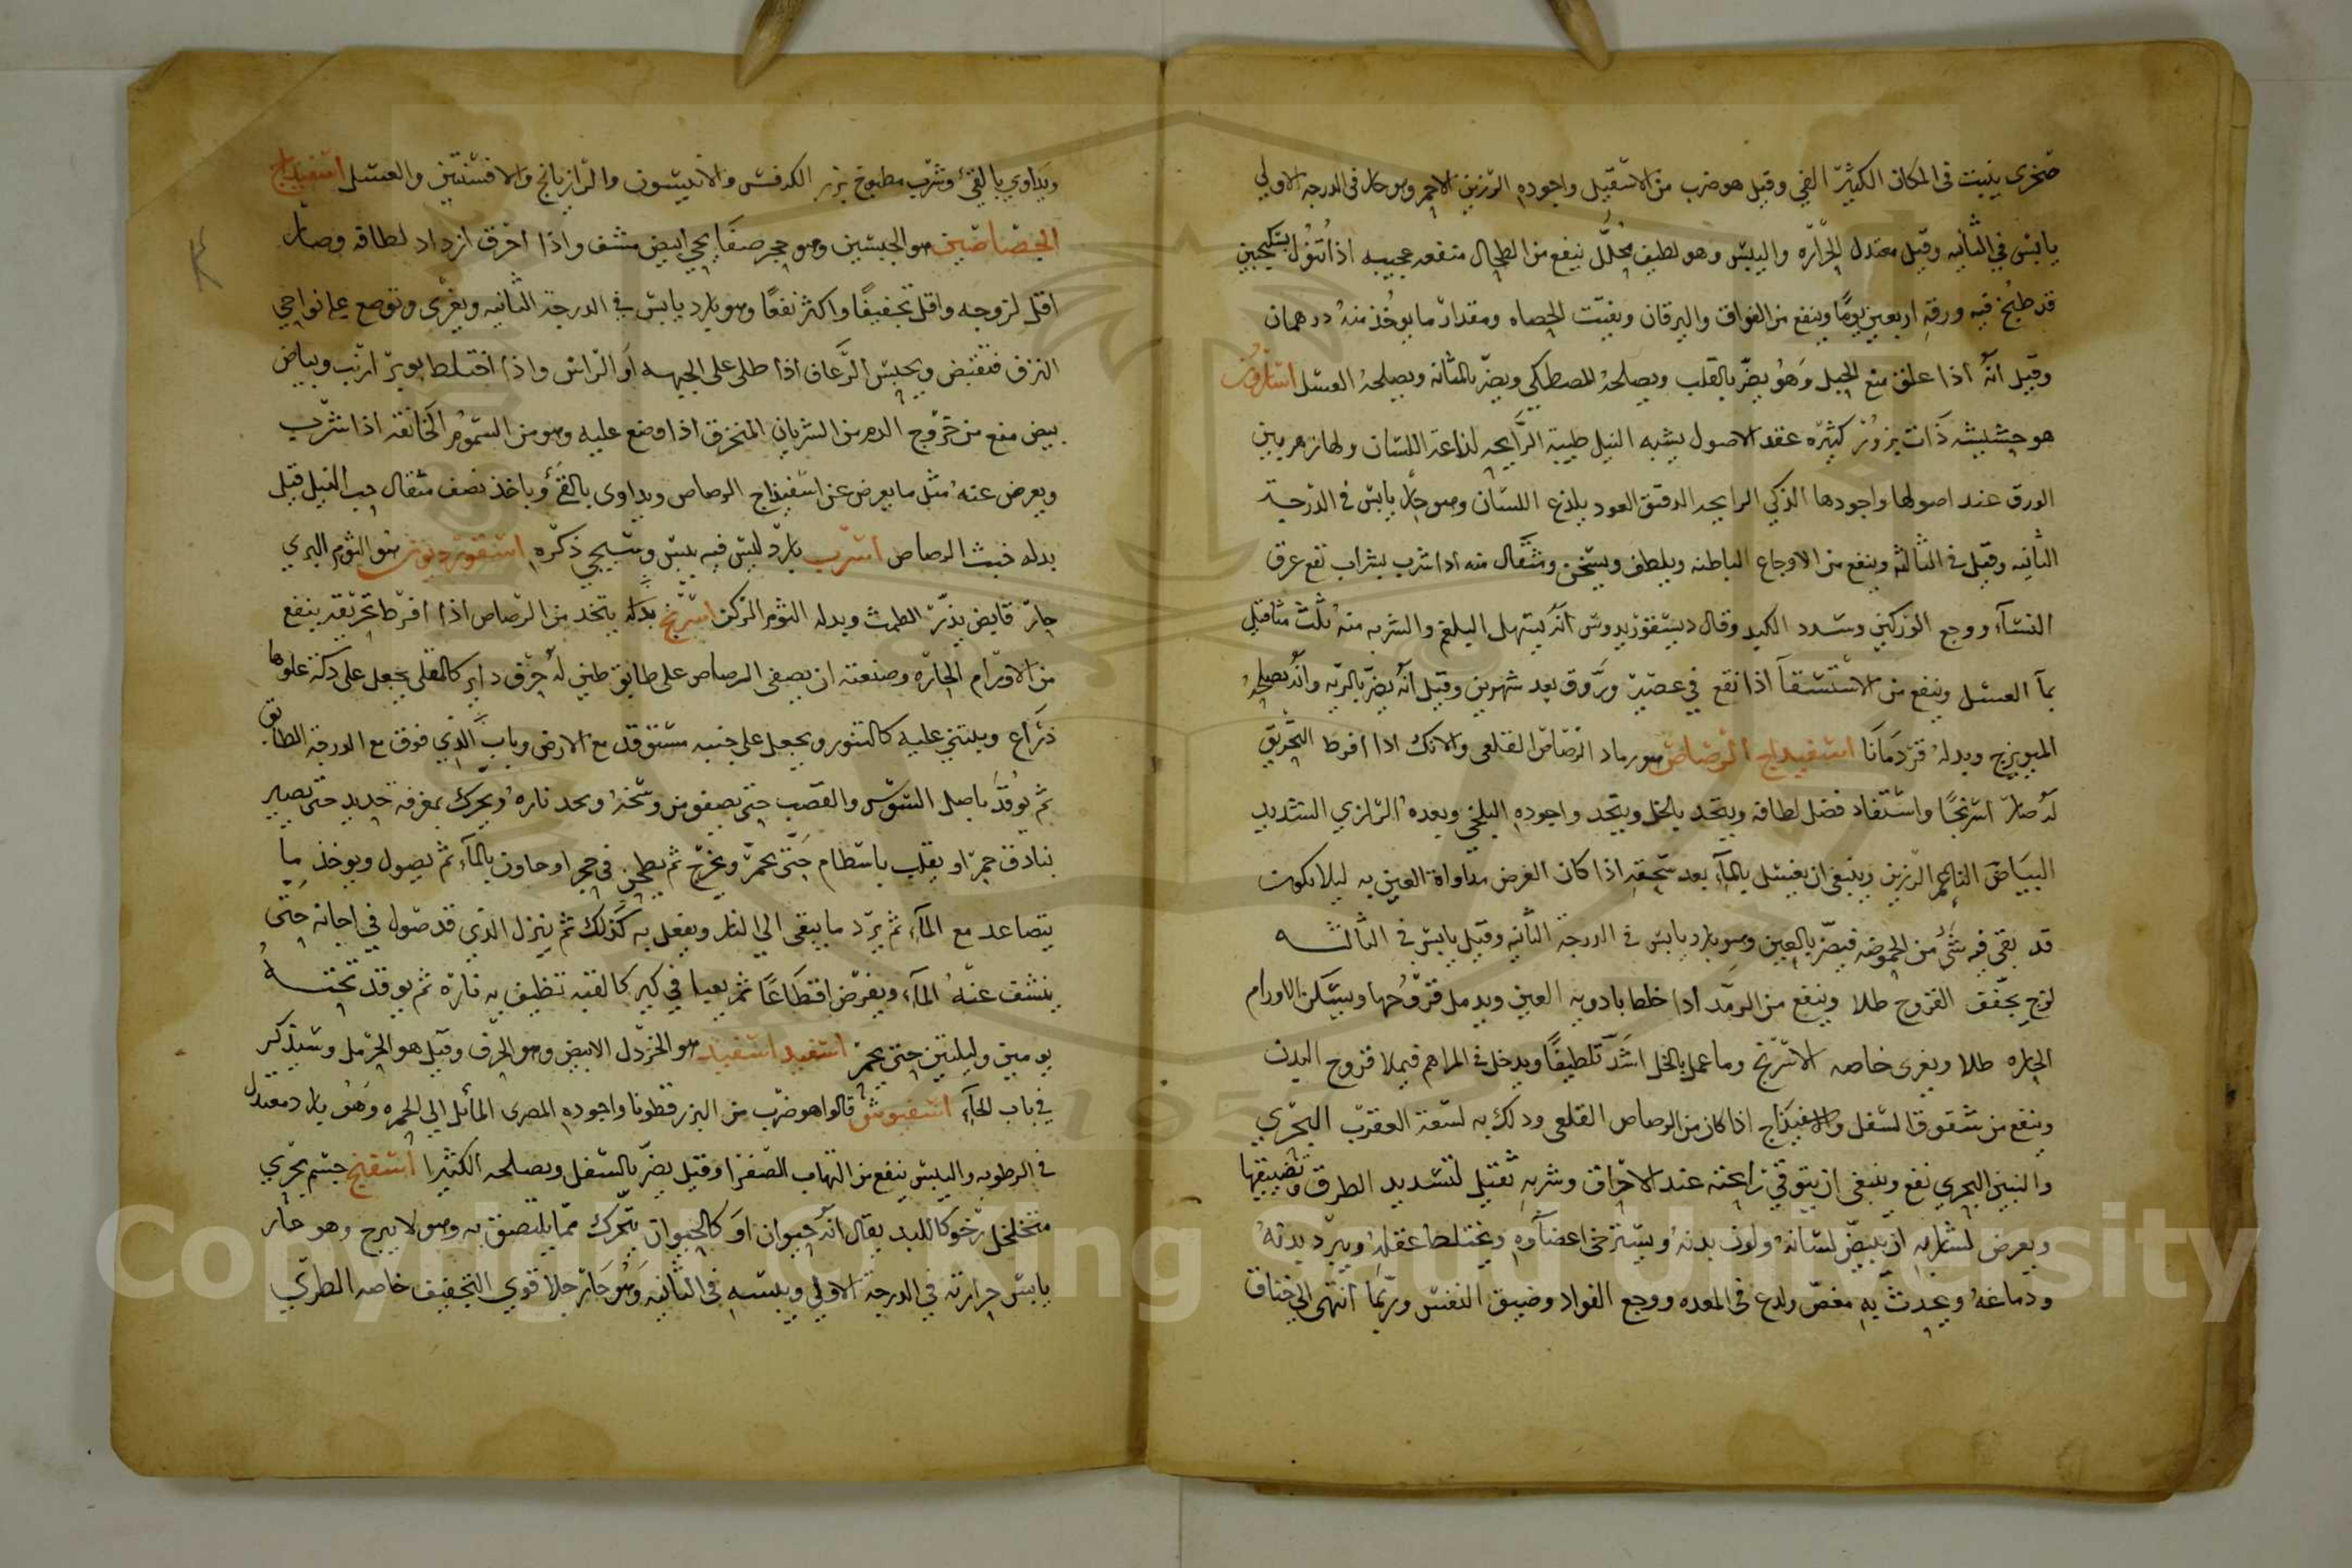 صخرى ينبت فى المكان الكثير الفي وقيل هو ضرب من الاسقيل واجوده الرزين الاحمر وهو حار فى الدرجه الاولي
يابس في الثانيه وقيل معتدل الحراره واليبس وهو لطيف محلل ينفع من الطحال منفعه عجيبه اذا تنول بسكنجبين
قد طبخ فيه ورقه اربعين يوما وينفع من الفواق واليرقان ويفتت الحصاه ومقدار ما يوخذ منه درهمان
وقيل انه اذا علق منع الحبل وهو يضر بالقلب ويصلحه المصطكى ويضر بالمثانه ويصلحه العسل اسارون
هو حشيشه ذات بزور كثيره عقد الاصول يشبه النيل طيبة الرايحه لذاعة اللسان ولها زهر بين
الورق عند اصولها واجودها الذكي الرايحه الدقيق العود يلذع اللسان وهو حار يابس فى الدرجة
الثانيه وقيل فى الثالثه وينفع من الاوجاع الباطنه ويلطف ويسخن ومثقال منه اذا شرب بشراب نفع عرق
النسا ووجع الوركين وسدد الكبد وقال ديسقوريدوس انه يسهل البلغم والشربه منه ثلث مثاقيل
بما العسل وينفع من الاستسقا اذا نقع في عصير وروق بعد شهرين وقيل انه يضر بالريه وانه يصلحه
الميويزج وبدله قردمانا اسفيداج الرصاص هو رماد الرصاص القلعى والانك اذا افرط التحريق
له صار اسرنجا واستفاد فضل لطافه ويتخذ بالخل ويتخذ واجوده البلخي وبعده الرازي الشديد
البياض الناعم الرزين وينبغى ان يغسل بالمآء بعد سحقه اذا كان الغرض مداواة العين به ليلا يكون
قد بقى فيه شئ من الحموضه فيضر بالعين وهو بارد يابس فى الدرجة الثانيه وقيل يابس فى الثالثه
لزج يجفف القروح طلا وينفع من الرمد اذا خلط بادويه العين ويدمل قروحها ويسكن الاورام
الحاره طلا ويغرى خاصه الاسرنج وما عمل بالخل اشد تلطيفا ويدخل فى المراهم فيملا قروح البدن
وينفع من شقوق السفل والاسفيذاج اذا كان من الرصاص القلعى ودلك به لسعة العقرب البحري
والتنين البحري نفع وينبغى ان يتوقى رايحته عند الاحراق وشربه ثقيل لتسديد الطرق وتضييقها
ويعرض لشاربه ان يبيض لسانه ولون بدنه وتسترخى اعضاوه ويختلط عقله ويبرد بدنه
ودماغه ويحدث به مغص ولدغ فى المعده ووجع الفواد وضيق النفس وربما انتهى الي خناق
ويداوي بالقئ وشرب مطبوخ بزر الكرفس والانيسون والرازيانج والافسنتين والعسل اسفيداج
الجصاصين هو الجبسين وهو حجر صفايحي ابيض مشف واذا احرق ازداد لطافه وصار
اقل لزوجه واقل تجفيفا واكثر نفعا وهو بارد يابس في الدرجة الثانيه ويغرى وتوضع على نواحي
النزف فتقبض ويحبس الرعاف اذا طلى على الجبهه او الراس واذا اختلط بوبر ارنب وبياض
بيض منع من خروج الدم من الشريان المنخرق اذا وضع عليه وهو من السموم الخانقه اذا شرب
ويعرض عنه مثل ما يعرض عن اسفيذاج الرصاص ويداوى بالقئ وياخذ نصف مثقال حب النيل قيل
بدله خبث الرصاص اسرب بارد ليس فيه يبس وسيجي ذكره اسقورديون هو الثوم البري
حار قابض يدر الطمث وبدله الثوم الزكى اسرنج بدله يتخذ من الرصاص اذا افرط تحريقه ينفع
من الاورام الحاره وصنعته ان يصفى الرصاص على طابق طين له حرف داير كالمقلى يجعل على دكة علوها
ذراع ويبتني عليه كالتنور ويجعل على جنبه مستوقد مع الارض وباب الذي فوق مع الدرجة الطابق
ثم يوقد باصل السوس والقصب حتى يصفو من وسخه ويحد ناره ويحرك بمغرفة حديد حتى تصير
بنادق حمرا ويقلب باسطام حتى يحمر ويخرج ثم يطحن في حجر او هاون بالمآء ثم يصول ويوخذ ما
يتصاعد مع المآء ثم يرد ما يبقى الى النار ويفعل به كذلك ثم ينزل الذي قد صول في اجانه حتى
ينشف عنه المآء ويفرض اقطاعا ثم يعبا في كير كالقبه نظيف به ناره ثم يوقد تحته
يومين وليلتين حتى يحمر اسفيد اسفيد هو الخردل الابيض وهو الحرف وقيل هو الحرمل وسيذكر
في باب الحآء اسفيوش قالوا هو ضرب من البزرقطونا واجوده المصرى المائل الى الحمره وهو بارد معتدل
فى الرطوبه واليبس ينفع من التهاب الصفرا وقيل يضر بالسفل ويصلحه الكثيرا اسفنج جسم بحري
متخلخل رخو كاللبد يقال انه حيوان او كالحيوان يتحرك مما يلتصق به وهو لا يبرح وهو حار
يابس حرارته في الدرجة الاولي ويبسه فى الثانيه وهو حار جلا قوي التجفيف خاصه الطري
Copyright © King Saud University